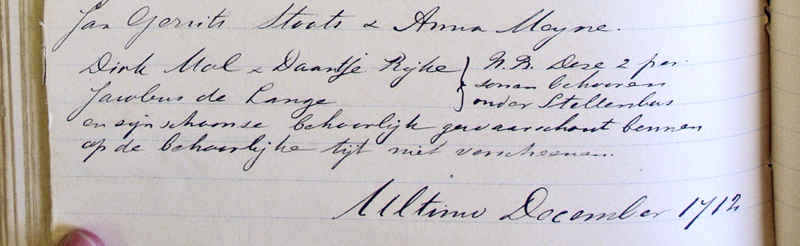 Jan Gerrits Staats & Anna Meyne.
Dirk Mol & Daartje Rijke } N.B. Dese 2 per-
sonen behooren
Jacobus de Lange onder Stellenbus
en zijn schoonse behoorlijk gewaarschout bennen
op de behoorlijke tijt niet verscheenen.
Ultimo December 1712